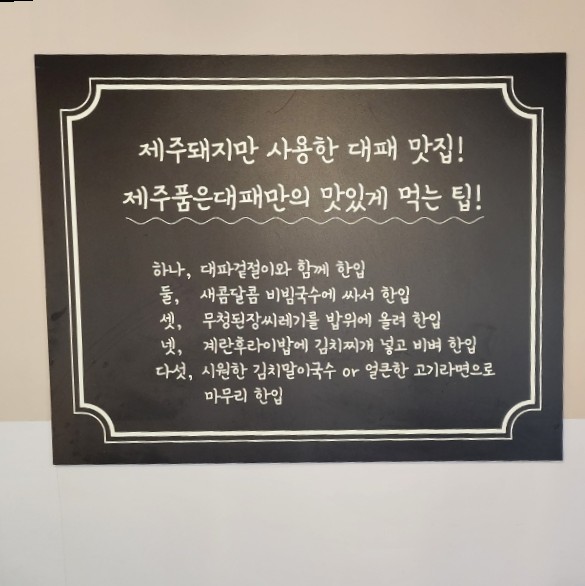 제주돼지만 사용한 대패 맛집!
제주품은대패만의 맛있게 먹는 팁!
하나, 대파겉절이와 함께 한입
둘, 새콤달콤 비빔국수에 싸서 한입
셋, 무청된장씨레기를 밥위에 올려 한입
넷, 계란후라이밥에 김치찌개 넣고 비벼 한입
다섯, 시원한 김치말이국수 or 얼큰한 고기라면으로
마무리 한입